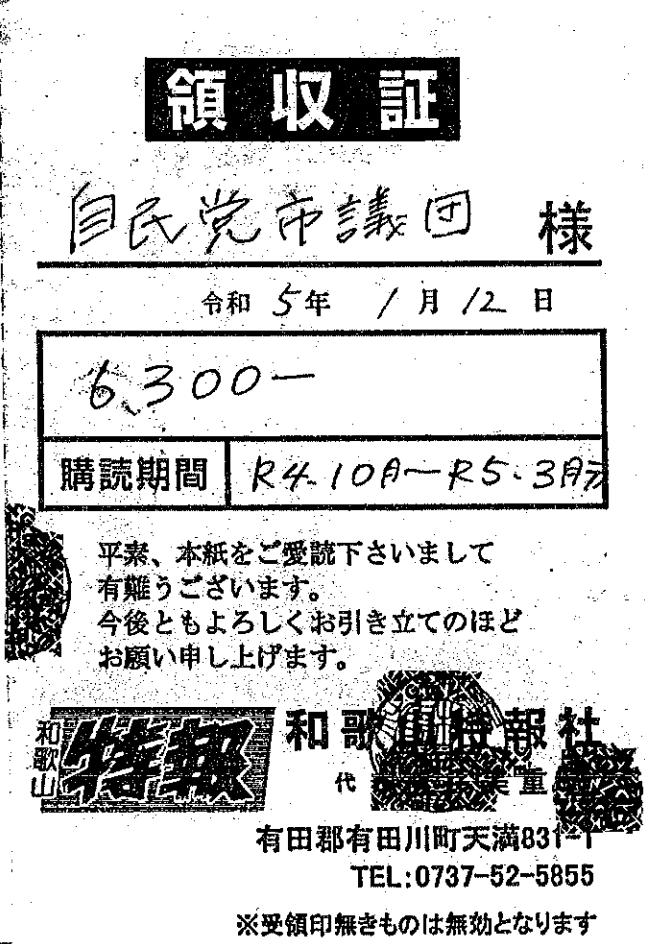 領収証
自民党市議団 様
令和 5年 1月 12日
6,300-
購読期間 R4.10月〜R5.3月迄
平素、本紙をご愛読下さいまして
有難うございます。
今後ともよろしくお引き立てのほど
お願い申し上げます。
和歌山特報 和歌山特報社
代
有田郡有田川町天満831-1
TEL:0737-52-5855
※受領印無きものは無効となります